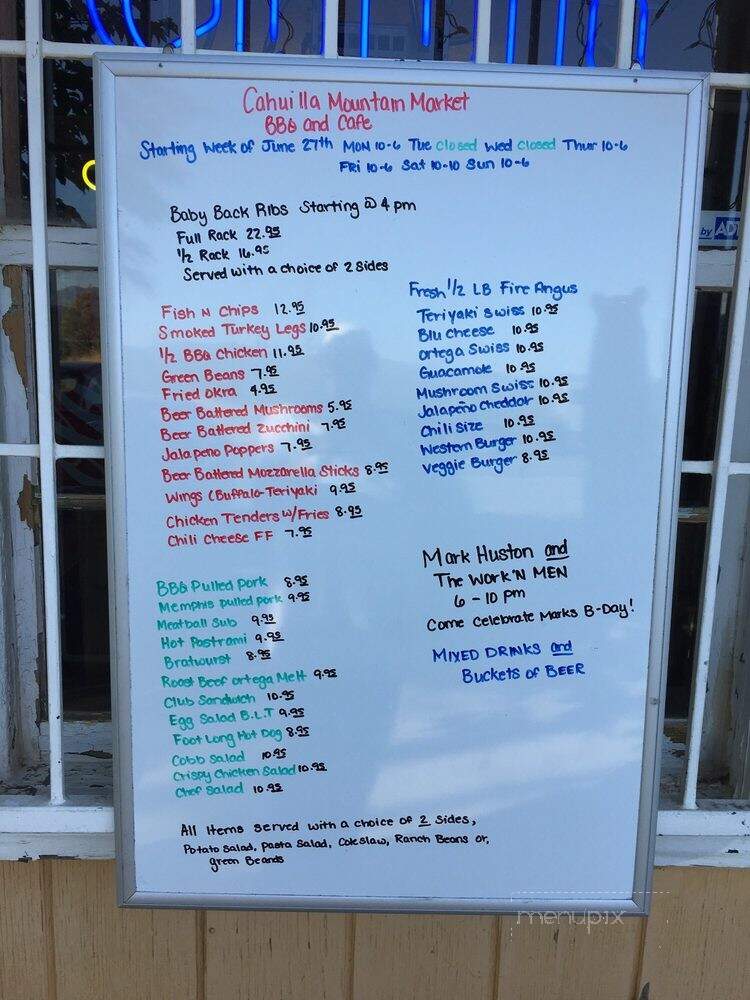 Cahuilla Mountain Market
BBQ and Cafe
Starting Week of June 27th MON 10-6 Tue Closed Wed Closed Thur 10-6
Fri 10-6 Sat 10-10 Sun 10-6
Baby Back Ribs Starting @ 4 pm
Full Rack 22.95
1/2 Rack 16.95
Served with a choice of 2 Sides
Fish N Chips 12.95
Smoked Turkey Legs 10.95
1/2 BBQ Chicken 11.95
Green Beans 7.95
Fried Okra 4.95
Beer Battered Mushrooms 5.95
Beer Battered Zucchini 7.95
Jalapeno Poppers 7.95
Beer Battered Mozzarella Sticks 8.95
Wings (Buffalo-Teriyaki 9.95
Chicken Tenders w/Fries 8.95
Chili Cheese FF 7.95
BBQ Pulled Pork 8.95
Memphis Pulled pork 9.95
Meatball Sub 9.95
Hot Pastrami 9.95
Bratwurst 8.95
Roast Beef Ortega Melt 9.95
Club Sandwich 10.95
Egg Salad B.L.T 9.95
Foot Long Hot Dog 8.95
Cobb Salad 10.95
Crispy Chicken Salad 10.95
Chef Salad 10.95
Fresh 1/2 LB Fire Angus
Teriyaki Swiss 10.95
Blu Cheese 10.95
Ortega Swiss 10.95
Guacamole 10.95
Mushroom Swiss 10.95
Jalapeño Cheddar 10.95
Chili Size 10.95
Western Burger 10.95
Veggie Burger 8.95
Mark Huston and
The Work'N MEN
6 - 10 pm
Come Celebrate Marks B-Day!
MIXED DRINKS and
Buckets of BEER
All Items Served with a choice of 2 Sides,
Potato Salad, Pasta Salad, Coleslaw, Ranch Beans or,
green Beands
by ADT
menupix